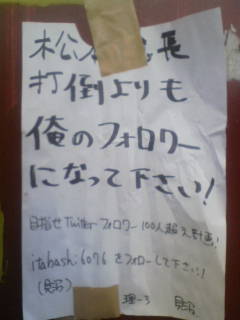 松
長
打倒よりも
俺のフォロワー
になって下さい!
目指せTwitterフォロワー100人超え計画!
itabashi6076をフォローして下さい!
理一3